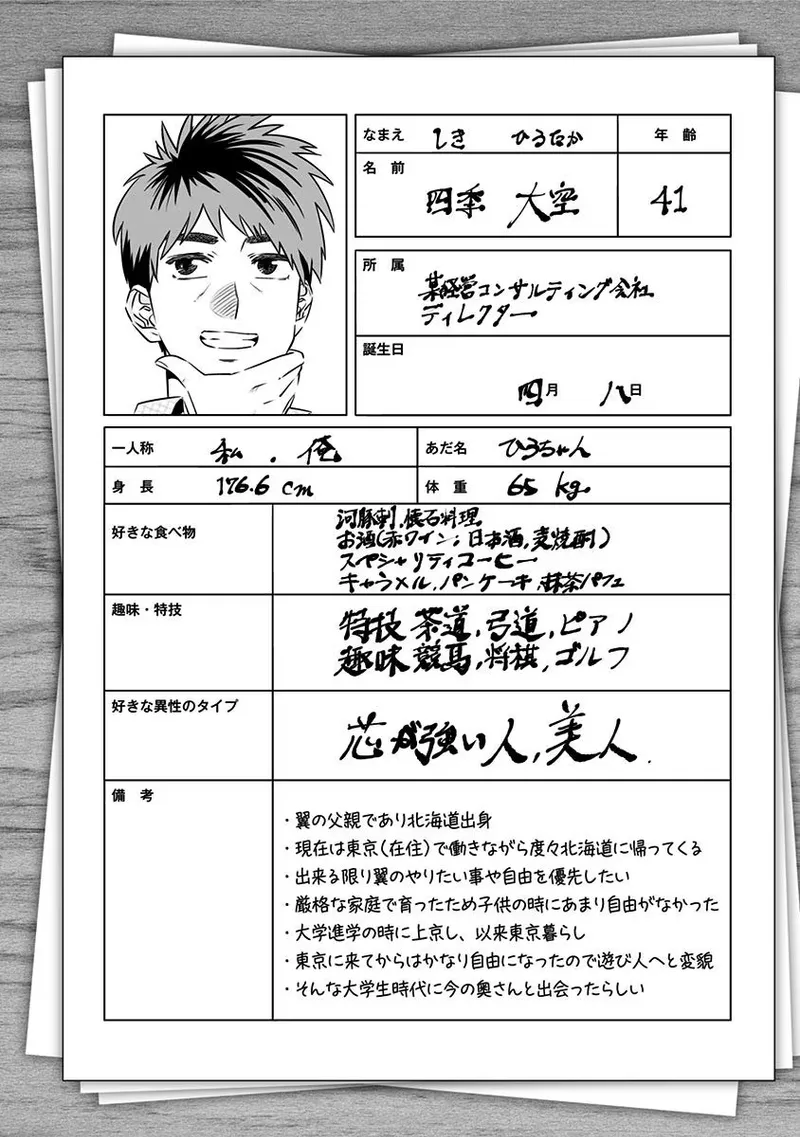 なまえ しき ひろたか
年 齢
名 前 四季 大空
41
所 属 某経営コンサルティング会社
ディレクター
誕生日
四月 八日
一人称 私.俺
あだ名 ひろちゃん
身 長 176.6 cm
体 重 65 kg.
好きな食べ物
河豚刺,懐石料理
お酒(赤ワイン,日本酒,麦焼酎)
スペシャリティコーヒー
キャラメル,パンケーキ,抹茶パフェ
趣味・特技
特技 茶道,弓道,ピアノ
趣味 競馬,将棋,ゴルフ
好きな異性のタイプ
芯が強い人,美人.
備 考
・翼の父親であり北海道出身
・現在は東京(在住)で働きながら度々北海道に帰ってくる
・出来る限り翼のやりたい事や自由を優先したい
・厳格な家庭で育ったため子供の時にあまり自由がなかった
・大学進学の時に上京し、以来東京暮らし
・東京に来てからはかなり自由になったので遊び人へと変貌
・そんな大学生時代に今の奥さんと出会ったらしい